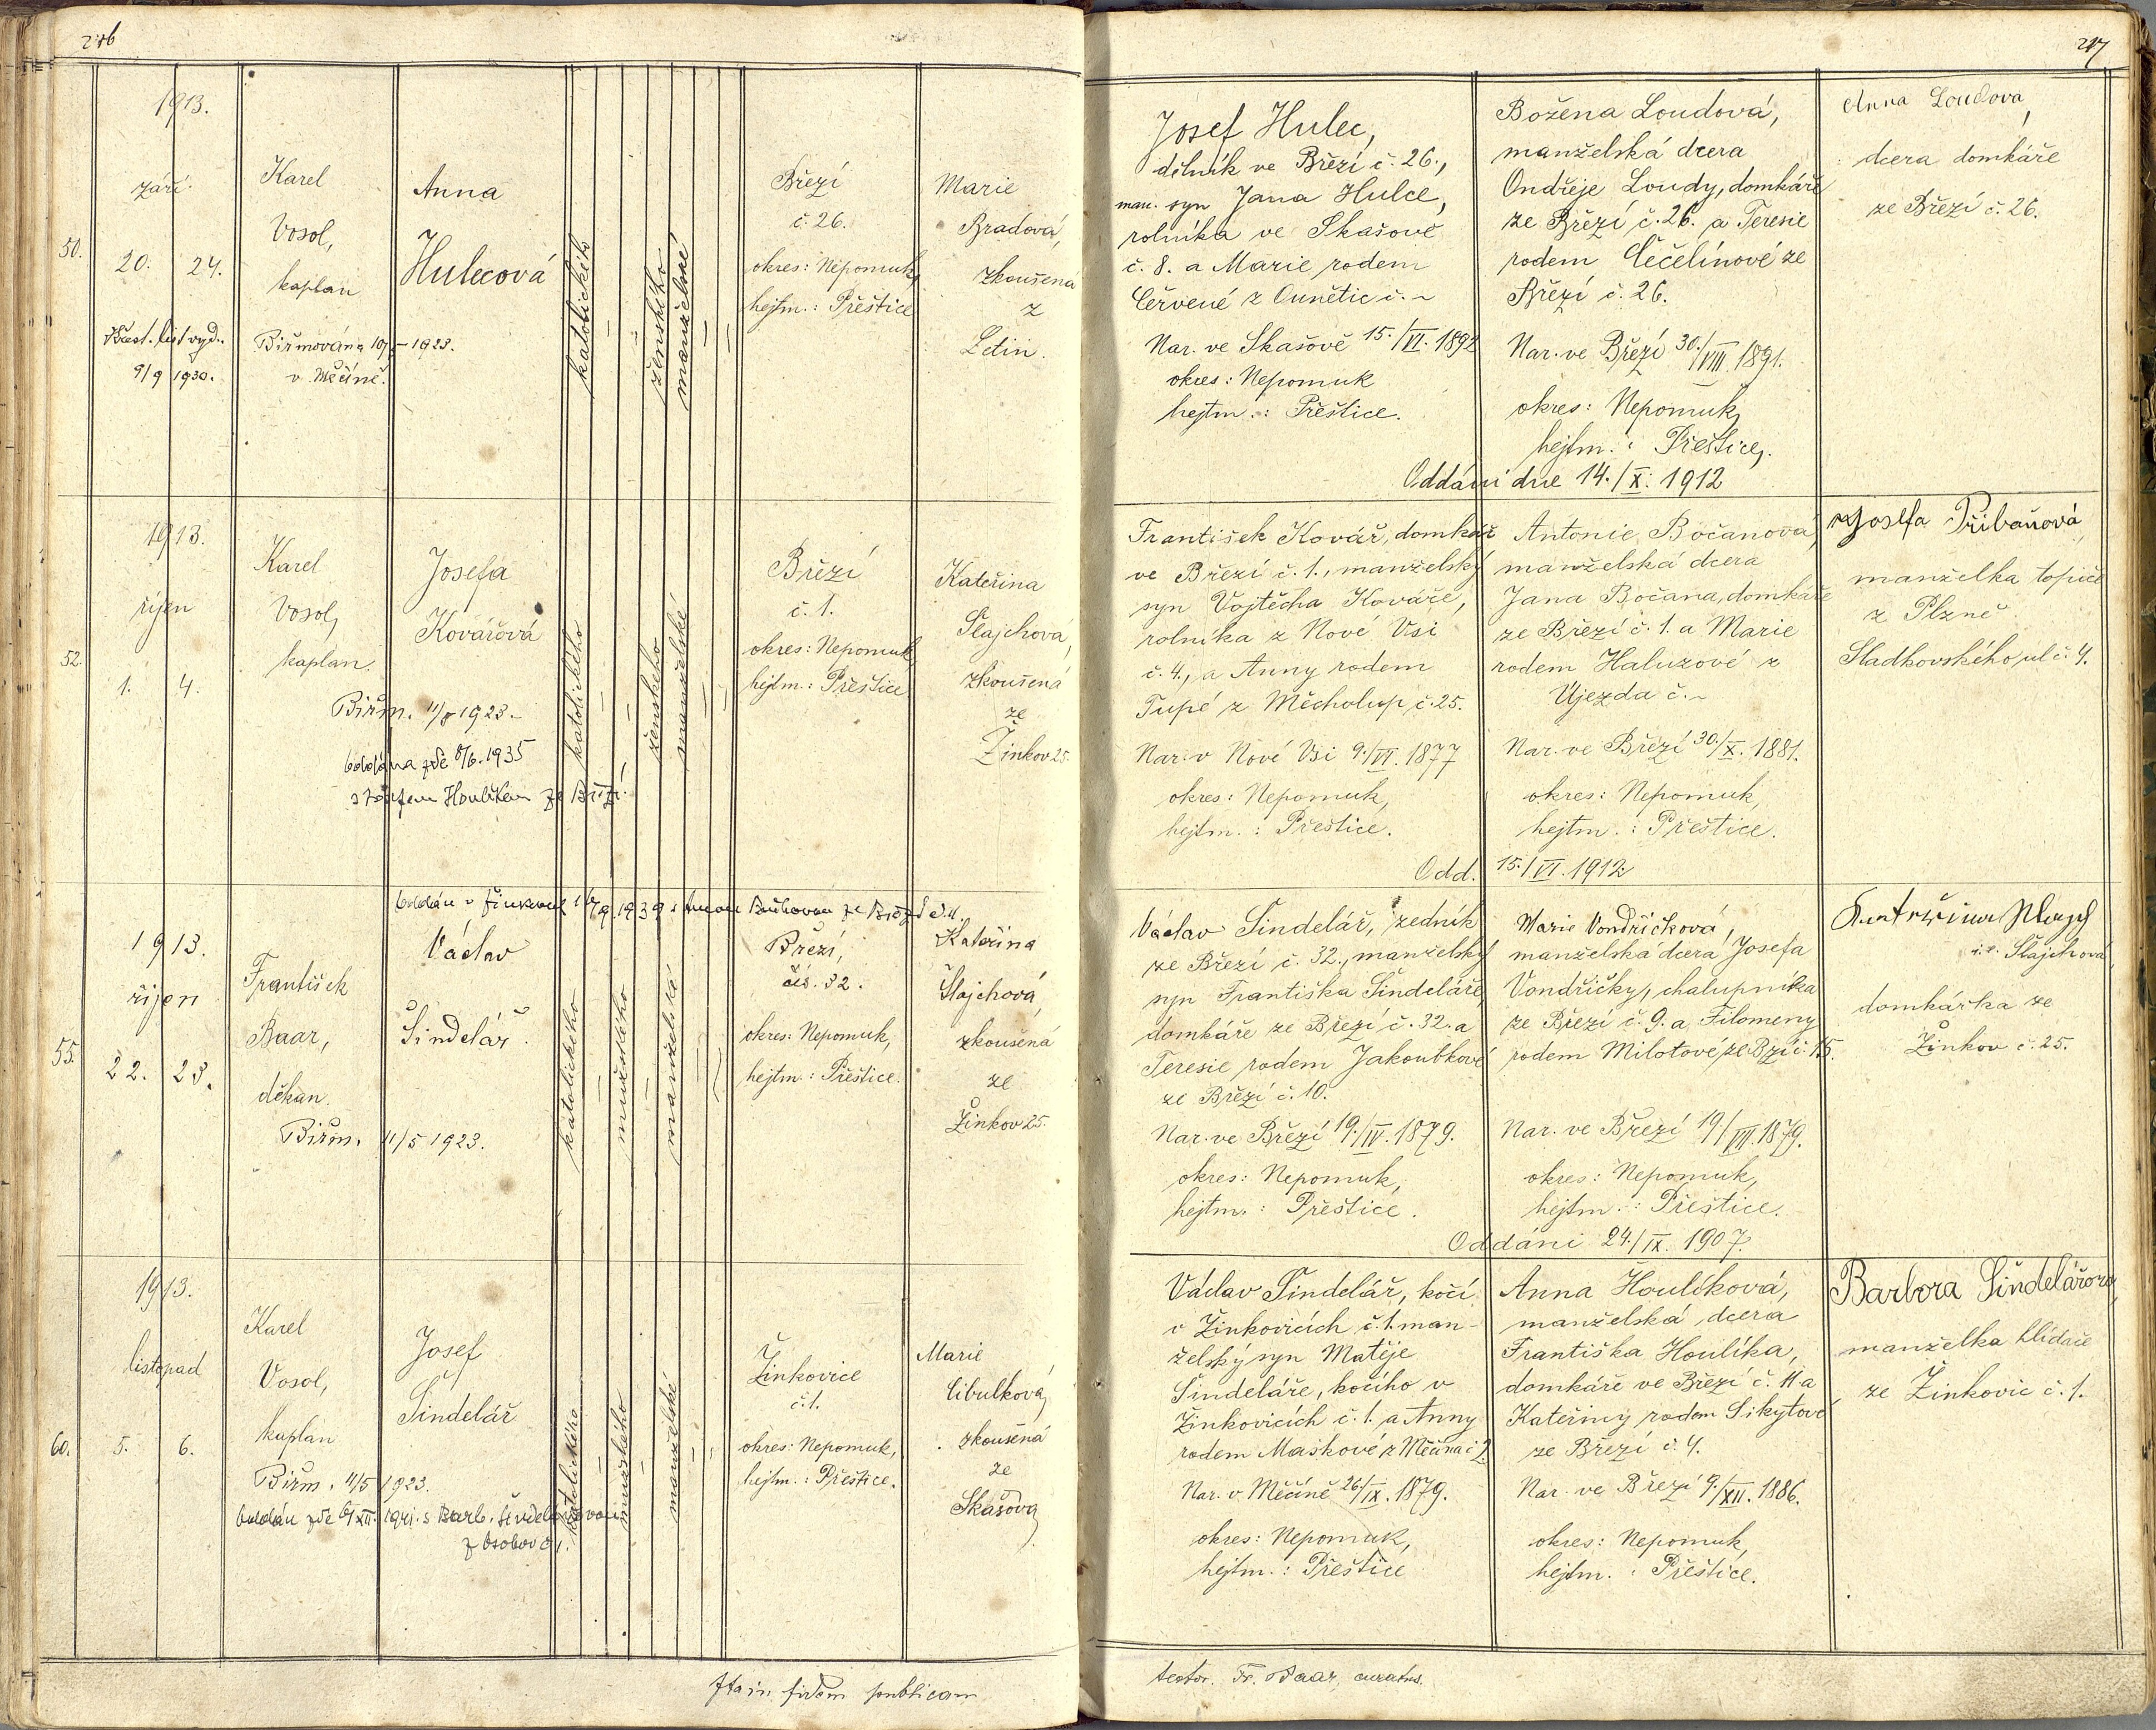 1913.
září.
50.
20. 24.
Křest. list vyd.
9/9 1930.
Karel
Vosol,
kaplan
Biřmována 1923.
v Měčíně.
Anna
Hulecová
katolického
ženského
manželské
Březí
č. 26.
okres: Nepomuk,
hejtm.: Přeštice
Marie
Bradová,
zkoušená
z
Letin.
1913.
říjen
52.
1. 4.
Karel
Vosol,
kaplan.
Biřm. 1923.
Josefa
Kovářová
oddána zde 8/6. 1935
s Josefem Houlíkem ze Březí.
katolického
ženského
manželské
Březí
č. 1.
okres: Nepomuk
hejtm.: Přeštice
Kateřina
Šlajchová,
zkoušená
ze
Žinkov 25.
1913.
říjen
55.
22. 23.
František
Baar,
děkan.
Biřm. 11/5 1923.
Václav
Šindelář.
katolického
mužského
manželské
Březí,
čís. 32.
okres: Nepomuk,
hejtm.: Přeštice.
Kateřina
Šlajchová,
zkoušená
ze
Žinkov 25.
1913.
listopad
60.
5. 6.
Karel
Vosol,
kaplan
Biřm. 11/5 1923.
Josef
Šindelář
z Osobov č. 1.
katolického
mužského
manželské
Žinkovice
č. 1.
okres: Nepomuk,
hejtm.: Přeštice.
Marie
Cibulková,
zkoušená
ze
Skašova
Ita in fidem publicam
217
Josef Hulec,
dělník ve Březí č. 26.,
man. syn Jana Hulce,
rolníka ve Skašově
č. 8. a Marie rodem
Červené z Ounětic č. ~
Nar. ve Skašově 15./VI. 1892
okres: Nepomuk
hejtm.: Přeštice.
Božena Loudová,
manželská dcera
Ondřeje Loudy, domkáře
ze Březí č. 26. a Teresie
rodem Čečelínové ze
Březí č. 26.
Nar. ve Březí 30./VIII 1891.
okres: Nepomuk,
hejtm.: Přeštice,.
Oddáni dne 14./X. 1912
Anna Loudova,
dcera domkáře
ze Březí č. 26.
František Kovář, domkář
ve Březí č. 1., manželský
syn Vojtěcha Kováře,
rolníka z Nové Vsi
č. 4., a Anny rodem
Tupé z Měcholup č. 25.
Nar. v Nové Vsi 9./VI. 1877
okres: Nepomuk,
hejtm.: Přeštice.
Antonie Bočanová,
manželská dcera
Jana Bočana, domkáře
ze Březí č. 1. a Marie
rodem Haluzové z
Újezda č. ~
Nar. ve Březí 30./X. 1881.
okres: Nepomuk,
hejtm.: Přeštice.
Odd. 15./VI. 1912
Josefa Přibaňová,
manželka topiče
z Plzně
Sladkovského ul č. 4.
Václav Šindelář, zedník
ze Březí č. 32., manželský
syn Františka Šindeláře,
domkáře ze Březí č. 32. a
Teresie rodem Jakoubkové
ze Březí č. 10.
Nar. ve Březí 19./IV. 1879.
okres: Nepomuk,
hejtm.: Přeštice.
Marie Vondřičková,
manželská dcera Josefa
Vondřičky, chalupníka
ze Březí č. 9. a Filomeny
rodem Milotové ze Bzí č. 15.
Nar. ve Březí 19/VII. 1879.
okres: Nepomuk,
hejtm.: Přeštice.
Oddáni 24./IX. 1907.
i. e. Šlajchová,
domkářka ze
Žinkov č. 25.
Václav Šindelář, kočí
v Žinkovicích č. 1. man-
želský syn Matěje
Šindeláře, kočího v
Žinkovicích č. 1. a Anny
rodem Maškové z Měčína č 2.
Nar. v Měčíně 26/IX. 1879.
okres: Nepomuk,
hejtm.: Přeštice
Anna Houlíková,
manželská dcera
Františka Houlíka,
domkáře ve Březí č. 11 a
Kateřiny rodem Sikytové
ze Březí č. 4.
Nar. ve Březí 9./XII. 1886.
okres: Nepomuk,
hejtm.: Přeštice.
Barbora Šindelářova,
manželka hlídače
ze Žinkovic č. 1.
testor. Fr. Baar, curatus.